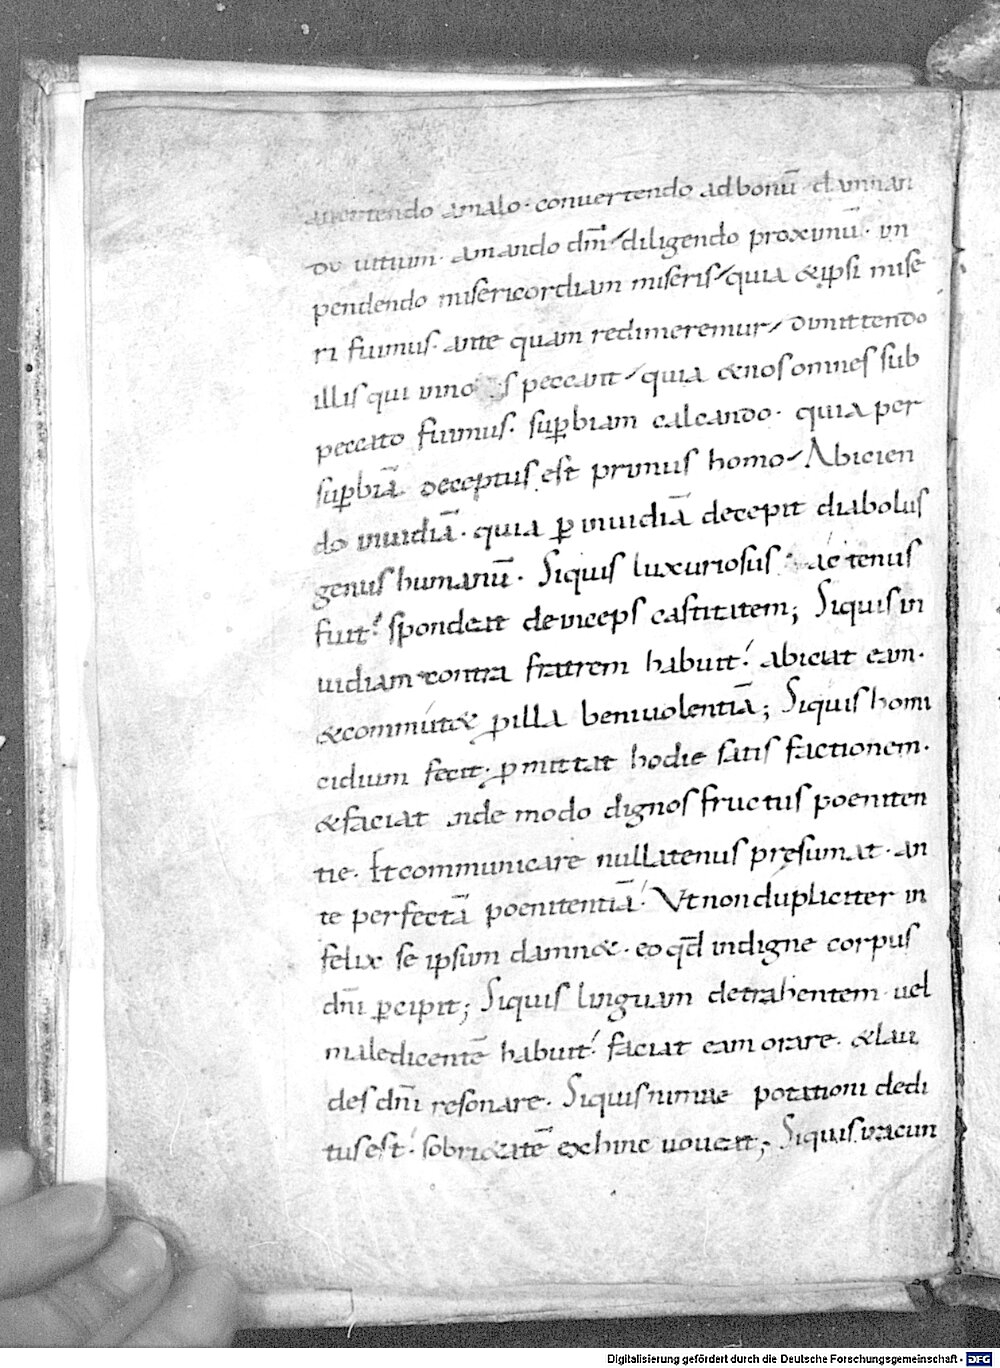 auertendo amalo · conuertendo ad bonū damnan
do uitium · amando dm̄ diligendo proximū · in
pendendo misericordiam miseris quia & ipsi mise
ri fuimus ante quam redimeremur dimittendo
illis qui in nos peccant quia & nos omnes sub
peccato fuimus · sup̄biam calcando · quia per
sup̄biā deceptus est primus homo Abicien
do inuidiā · quia p̄ inuidiā decepit diabolus
genus humanū · Siquis luxuriosus actenus
fuit spondeat deinceps castitatem; Siquis in
uidiam contra fratrem habuit abiciat eam ·
& commut& p̄ illa beniuolentiā; Siquis homi
cidium fecit · p̄mittat hodie satis factionem ·
& faciat inde modo dignos fructus poeniten
tie · Et communicare nullatenus pręsumat · an
te perfectā poenitentiā Ut non dupliciter in
felix se ipsum damn& · eo qd̄ indigne corpus
dn̄i p̄cipit; Siquis linguam detrahentem uel
maledicentē habuit faciat eam orare · & lau
des dn̄i resonare · Siquis nimiae potationi dedi
tus est sobri&atē exhinc uoueat; Siquis iracun
Digitalisierung gefördert durch die Deutsche Forschungsgemeinschaft - DFG